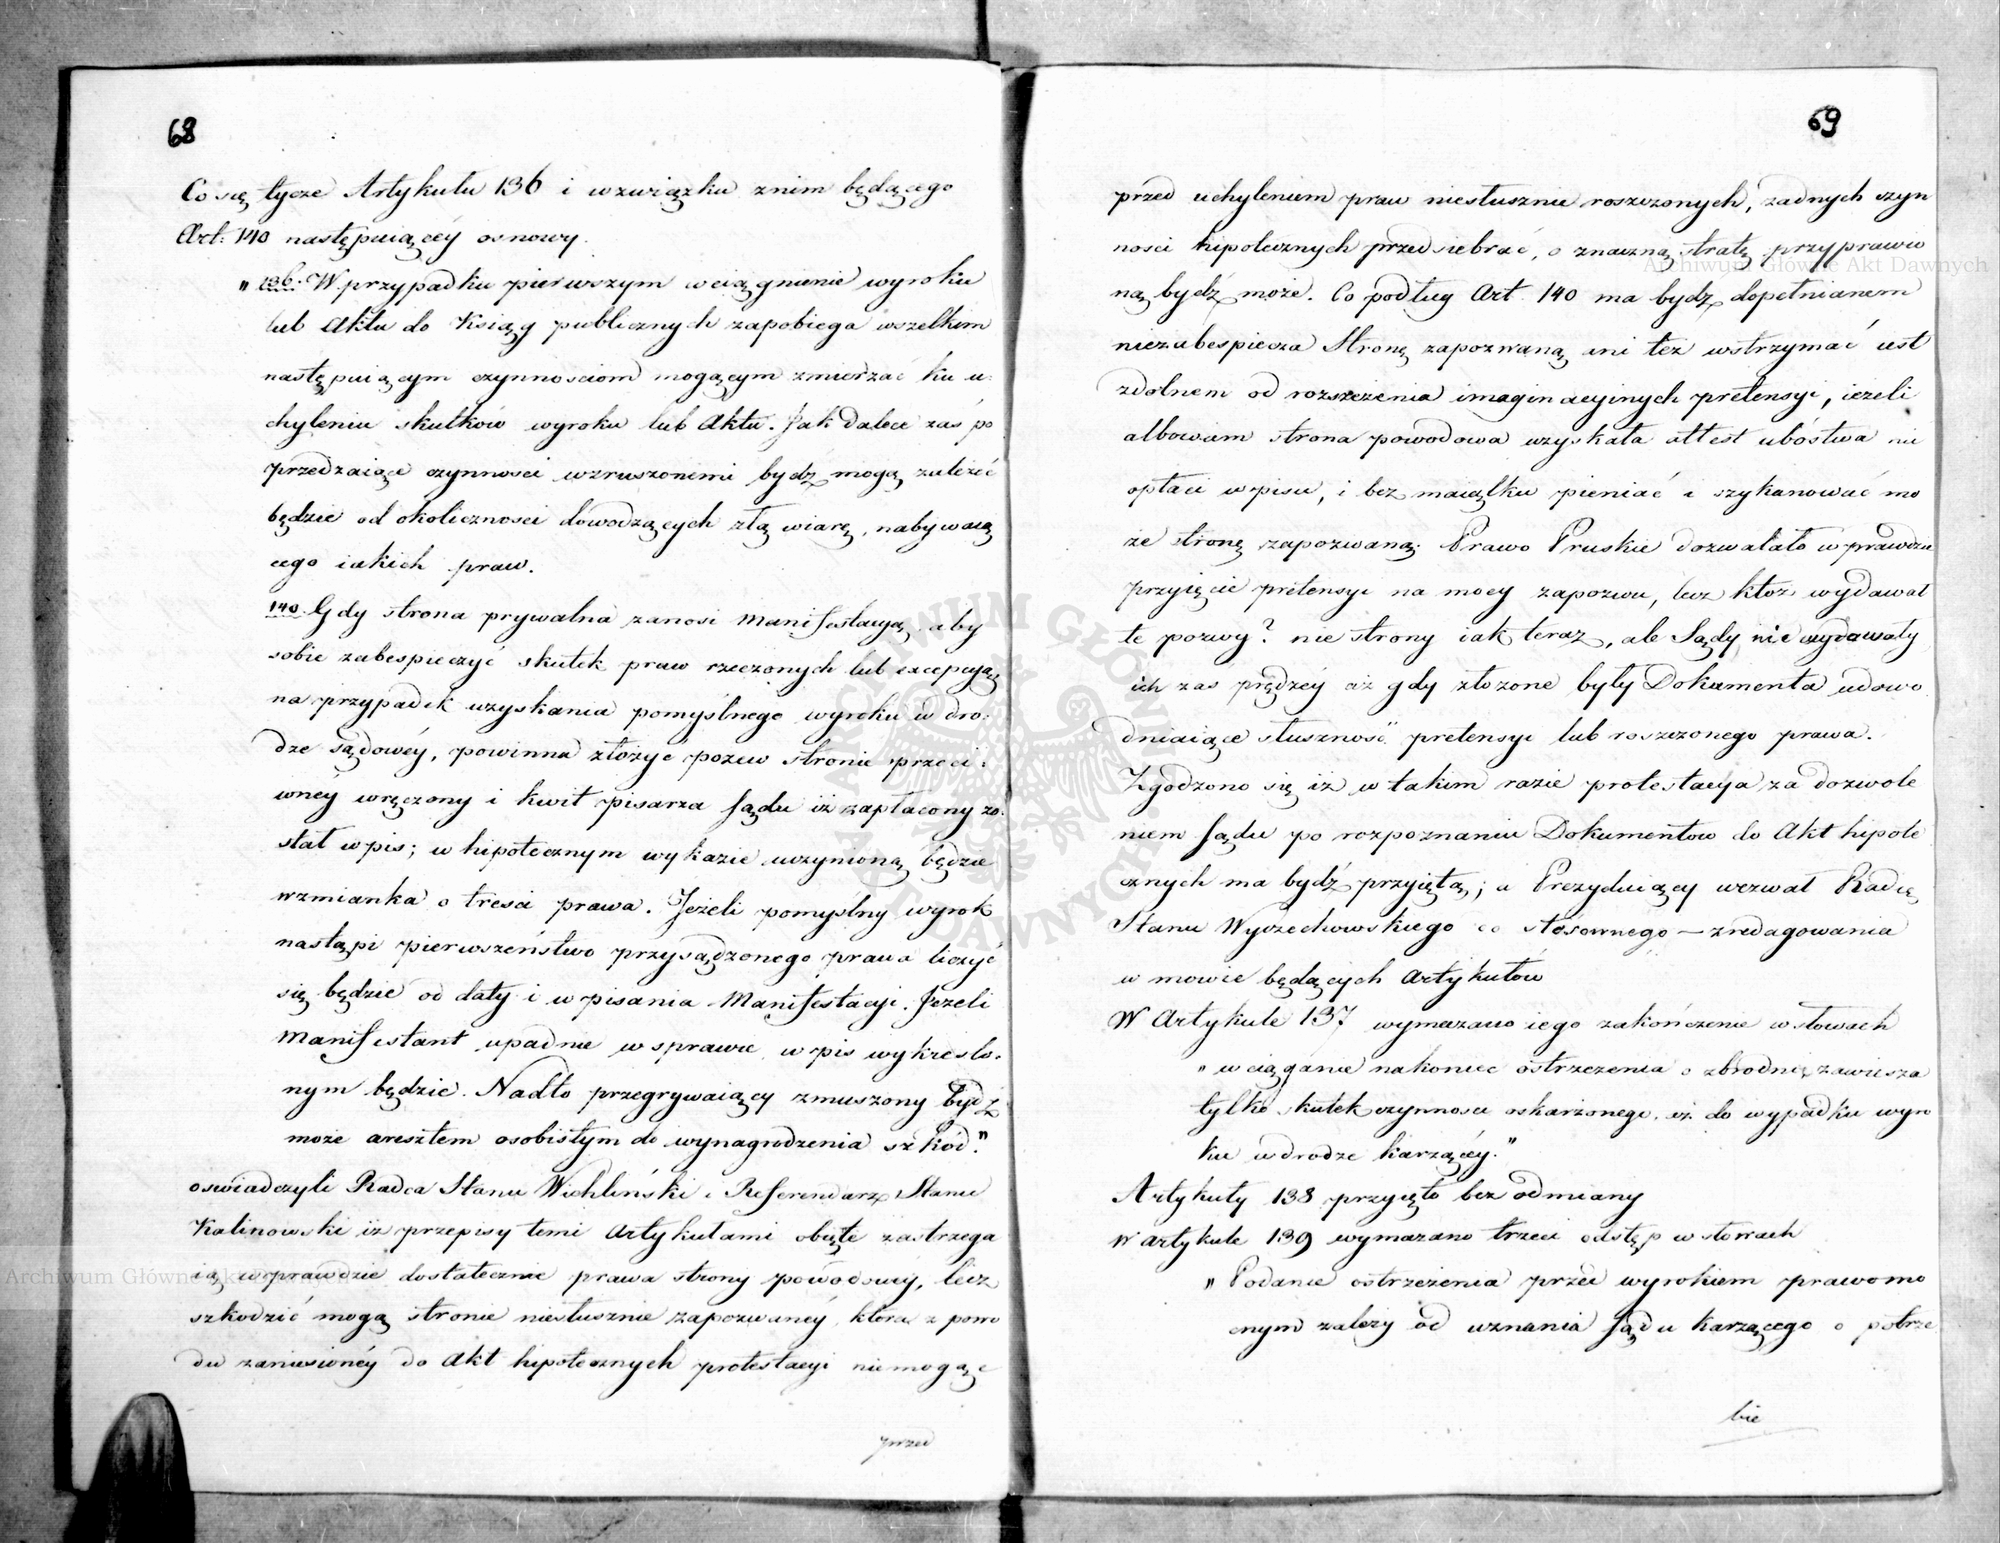 68
Co się tycze Artykułu 136 i w związku z nim będącego
Art: 140 następuiącéy osnowy.
„ 136. W przypadku pierwszym wciągnienie wyroku
lub Aktu do Ksiąg publicznych zapobiega wszelkim
następuiącym czynnosciom mogącym zmierzac ku u-
chyleniu skutków wyroku lub Aktu. Jak dalece zas po
przedzaiące czynnosci wzruszonemi bydź mogą zależeć
będzie od okolicznosci dowodzących złą wiarę, nabywaią
cego iakich praw.
140. Gdy strona prywatna zanosi Manifestacyą, aby
sobie zabespieczyć skutek praw rzeczonych lub excepcyą
na przypadek uzyskania pomyślnego wyroku w dro-
dze sądowéy, powinna złożyć pozew stronie przeci-
wnéy wręczony i kwit pisarza Sądu iż zapłacony zo-
stał wpis; w hipotecznym wykazie uczynioną będzie
wzmianka o tresci prawa. Jeżeli pomyślny wyrok
nastąpi pierwszeństwo przysądzonego prawa liczyć
się będzie od daty i wpisania Manifestacyi. Jeżeli
Manifestant upadnie w sprawie, wpis wykreslo-
nym będzie. Nadto przegrywaiący zmuszony bydź
może aresztem osobistym do wynagrodzenia szkód."
oswiadczyli Radca Stanu Wichliński i Referendarz Stanu
Kalinowski iż przepisy temi Artykułami obięte zastrzega
ią wprawdzie dostatecznie prawa strony powodowey, lecz
szkodzić mogą stronie niesłusznie zapozwanéy, która z powo
du zaniesionéy do Akt hipotecznych protestacyi niemogąc
przed
69
przed uchyleniem praw niesłusznie roszczonych, żadnych czyn
nosci hipotecznych przedsiebrać, o znaczną stratę przyprawio
ną bydź może. Co podług Art. 140 ma bydź dopełnianem
niezabespiecza Stronę zapozwaną ani też wstrzymać iest
zdolnem od rozszerzenia imaginacyinych pretensyi, ieżeli
albowiem strona powodowa uzyskała attest ubóstwa nie
opłaci wpisu, i bez maiątku pieniać i szykanować mo
że stronę zapozwaną; Prawo Pruskie dozwalało wprawdzie
przyięcie pretensyi na mocy zapozwu, lecz któż wydawał
te pozwy? nie strony iak teraz, ale Sądy, nie wydawały
ich zas prędzéy aż gdy złożone były Dokumenta udowo
dniaiące słuszność pretensyi lub roszczonego prawa.
Zgodzono się iż w takim razie protestacya za dozwole
niem Sądu po rozpoznaniu Dokumentow do Akt hipote
cznych ma bydź przyiętą; a Prezyduiący wezwał Radcę
Stanu Wyczechowskiego do stosownego – zredagowania
w mowie będących Artykułów
W Artykule 137 wymazano iego zakończenie w słowach
„ wciąganie nakoniec ostrzeżenia o zbrodnię zawiesza
tylko skutek czynnosci oskarżonego aż do wypadku wyro
ku w drodze karzącéy."
Artykuły 138 przyięto bez odmiany
W artykule 139 wymazano trzeci odstęp w słowach
„ Podanie ostrzeżenia przed wyrokiem prawomo
cnym zależy od uznania Sądu karzącego o potrze
bie
Archiwum Główne Akt Dawnych
Archiwum Główne Akt Dawnych
ARCHIWUM GŁÓWNE AKT DAWNYCH